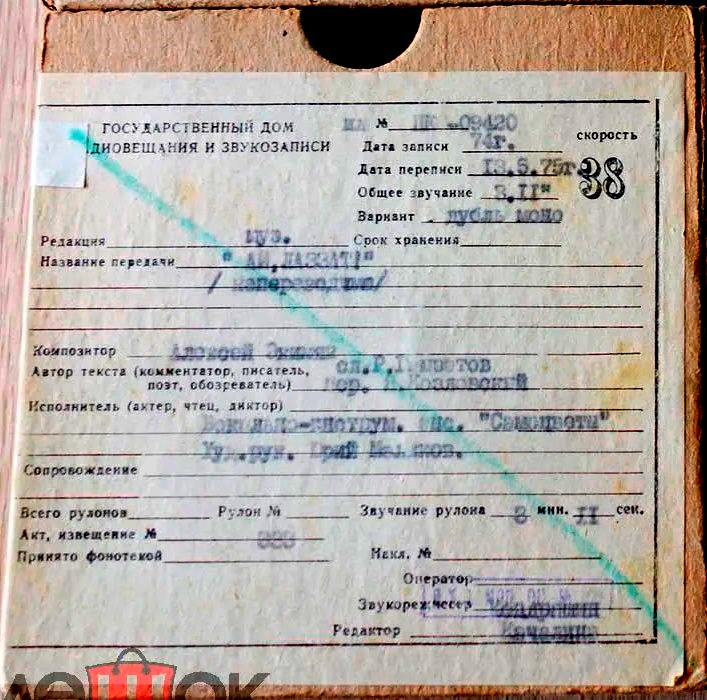 ГОСУДАРСТВЕННЫЙ ДОМ
ДИОВЕЩАНИЯ И ЗВУКОЗАПИСИ
№ 09420
Дата записи 74г.
скорость
38
Дата переписи 13.5.75г.
Общее звучание 3.II"
Вариант дубль моно
Редакция муз.
Срок хранения
Название передачи "АЙ, ЛАЗЗАТ!"
/ непереводимо/
Композитор Алексей
Автор текста (комментатор, писатель, сл.Р.
поэт, обозреватель) пер. Козловский
Исполнитель (актер, чтец, диктор)
Вокально-инструм. анс. "Самоцветы"
Худ.рук. Юрий Маликов.
Сопровождение
Всего рулонов Рулон № Звучание рулона 3 мин. II сек.
Акт, извещение №
Принято фонотекой
Накл. №
Оператор
Звукорежиссер
Редактор
мешок